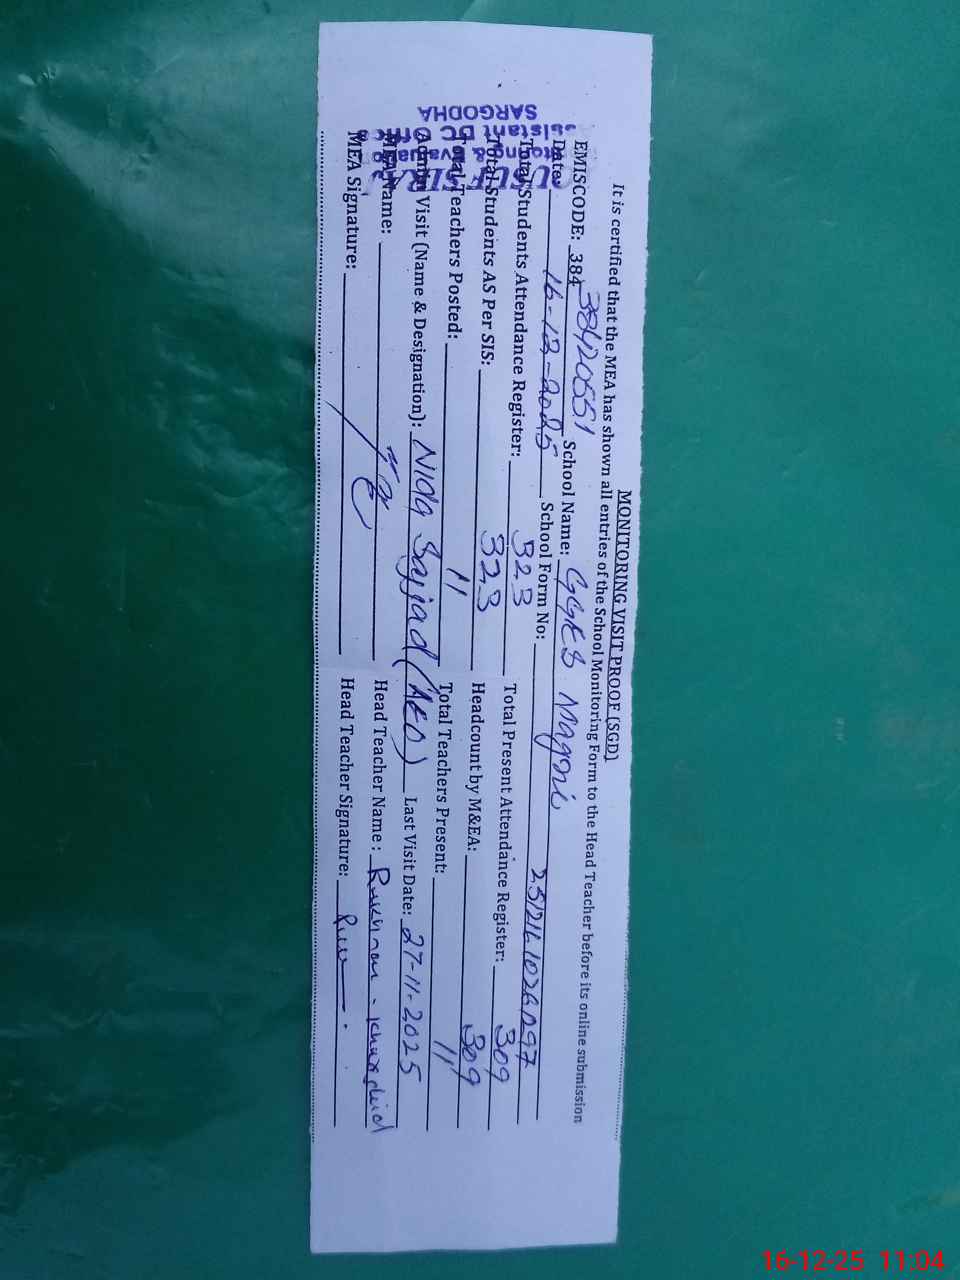 MONITORING VISIT PROOF (SGD)
It is certified that the MEA has shown all entries of the School Monitoring Form to the Head Teacher before its online submission
EMISCODE: 384 38420551 School Name: GGES Nagni
Date: 16-12-2025 School Form No:
Total Students Attendance Register: 323 Total Present Attendance Register: 309
Total Students AS Per SIS: 323 Headcount by M&EA: 309
Total Teachers Posted: 11 Total Teachers Present: 11
Admin Visit (Name & Designation): Nida Sajjad (AEO) Last Visit Date: 27-11-2025
MEA Name: Head Teacher Name: Rukhsan - Khurshid
MEA Signature: Head Teacher Signature:
SARGODHA
16-12-25 11:04